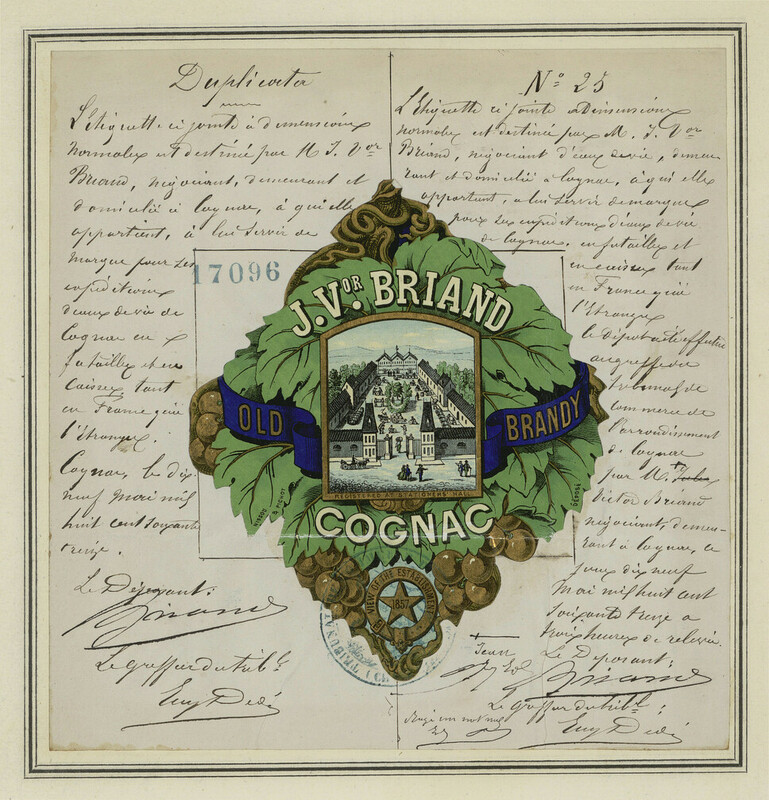 Duplicata
L'étiquette ci jointe à dimensions
normales est destinée par M J. Vor
Briand, négociant, demeurant et
domicilié à Cognac, à qui elle
appartient, à lui servir de
marque pour ses
expéditions
d'eaux de vie de
Cognac en
futailles et en
caisses tant
en France qu'à
l'étranger.
Cognac, le dix
neuf mai mil
huit cent soixante
treize.
Le Déposant:
Briand
Le greffier du tribl
Eug Dedé
No 25
L'étiquette ci jointe à dimensions
normales est destinée par M. J. Vor
Briand, négociant d'eaux de vie, demeu
rant et domicilié à Cognac, à qui elle
appartient, à lui servir de marque
pour ses expéditions d'eaux de vie
de Cognac, en futailles et
en caisses tant
en France qu'à
l'étranger
le dépôt a été effectué
au greffe du
tribunal de
commerce de
l'arrondissement
de Cognac
par M. Jules
Victor Briand
négociant, demeu-
rant à Cognac, ce
jour dix neuf
Mai mil huit cent
soixante treize à
trois heures de relevée.
Le Déposant:
Briand
Le greffier du tribl:
Eug Dedé
17096
J. VOR. BRIAND
OLD BRANDY
REGISTERED AT STATIONERS' HALL
COGNAC
DÉPOSÉ
VIEW OF THE ESTABLISHMENT
1857